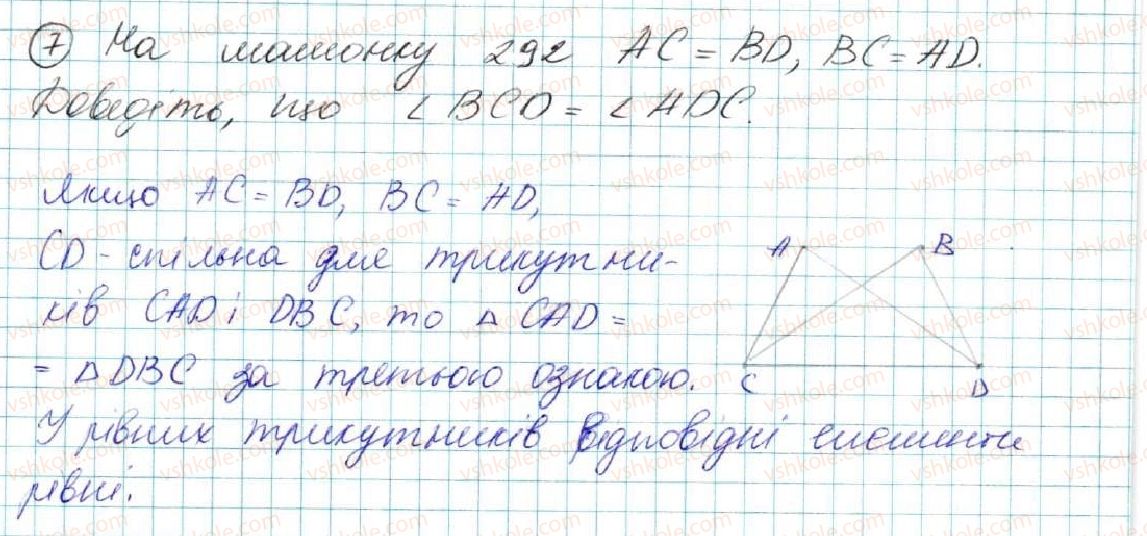 7 На малюнку 292 AC = BD, BC = AD.
Доведіть, що ∠BCD = ∠ADC.
Якщо AC = BD, BC = AD,
CD - спільна для трикутни-
ків CAD і DBC, то △CAD =
= △DBC за третьою ознакою.
У рівних трикутників відповідні елементи
рівні.
A B
C D
vshkole.com